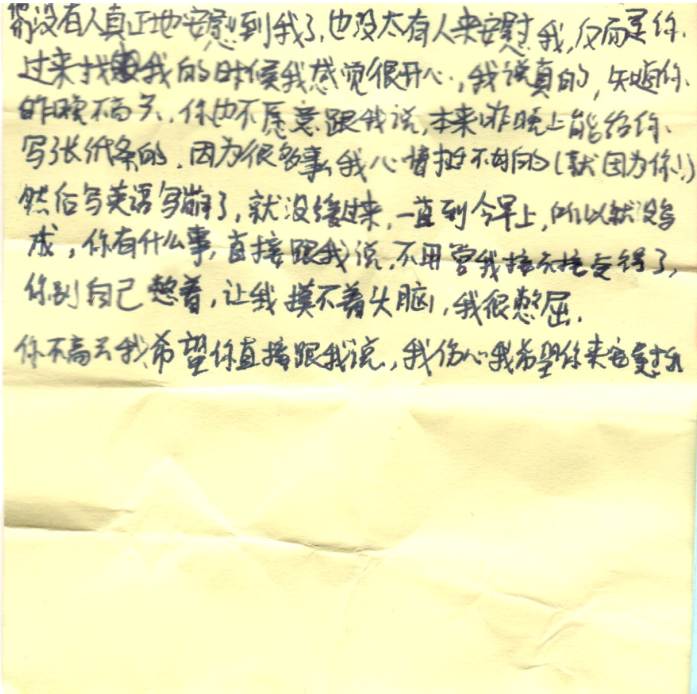 都没有人真正地安慰到我了,也没太有人来安慰我,反而是你
过来找我的时候我感觉很开心,我说真的,知道你
昨晚不高兴,你也不愿意跟我说,本来昨晚上能给你
写张纸条的,因为很多事,我心情挺不好的(就因为你!)
然后写英语写崩了,就没缓过来,一直到今早上,所以就没写
成,你有什么事,直接跟我说,不用管我接不接受得了,
你别自己憋着,让我摸不着头脑,我很憋屈.
你不高兴我希望你直接跟我说,我伤心我希望你来安慰我